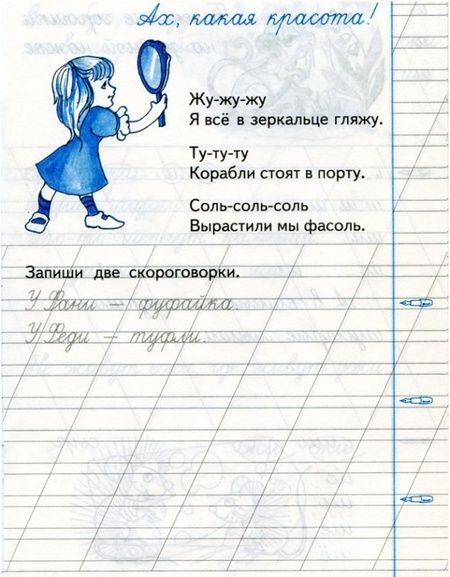 Ах, какая красота!
Жу-жу-жу
Я всё в зеркальце гляжу.
Ту-ту-ту
Корабли стоят в порту.
Соль-соль-соль
Вырастили мы фасоль.
Запиши две скороговорки.
У Фани – фуфайка
У Феди – туфли.